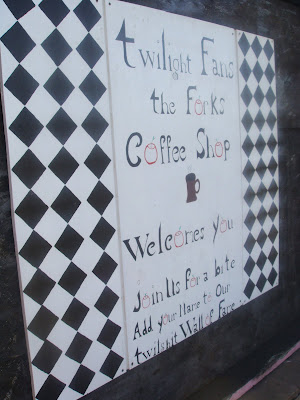 twilight Fans
the Forks
Coffee Shop
Welcomes You
Join Us for a bite
Add your Name to Our
twilight Wall of Fame